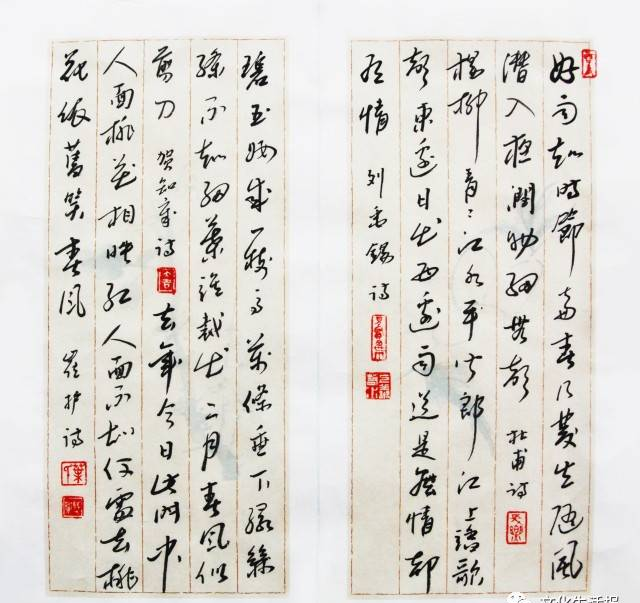 好雨知时節當春乃發生随風
潜入夜潤物細無聲 杜甫詩
楊柳青々江水平聞郎江上踏歌
聲東邊日出西邊雨道是無情却
有情 刘禹锡诗
碧玉妝成一樹高萬條垂下綠絲
絛不知細葉誰裁出二月春風似
剪刀 贺知章诗 去年今日此門中
人面桃花相映红人面不知何處去桃
花依舊笑春風 崔护诗
文化生活报